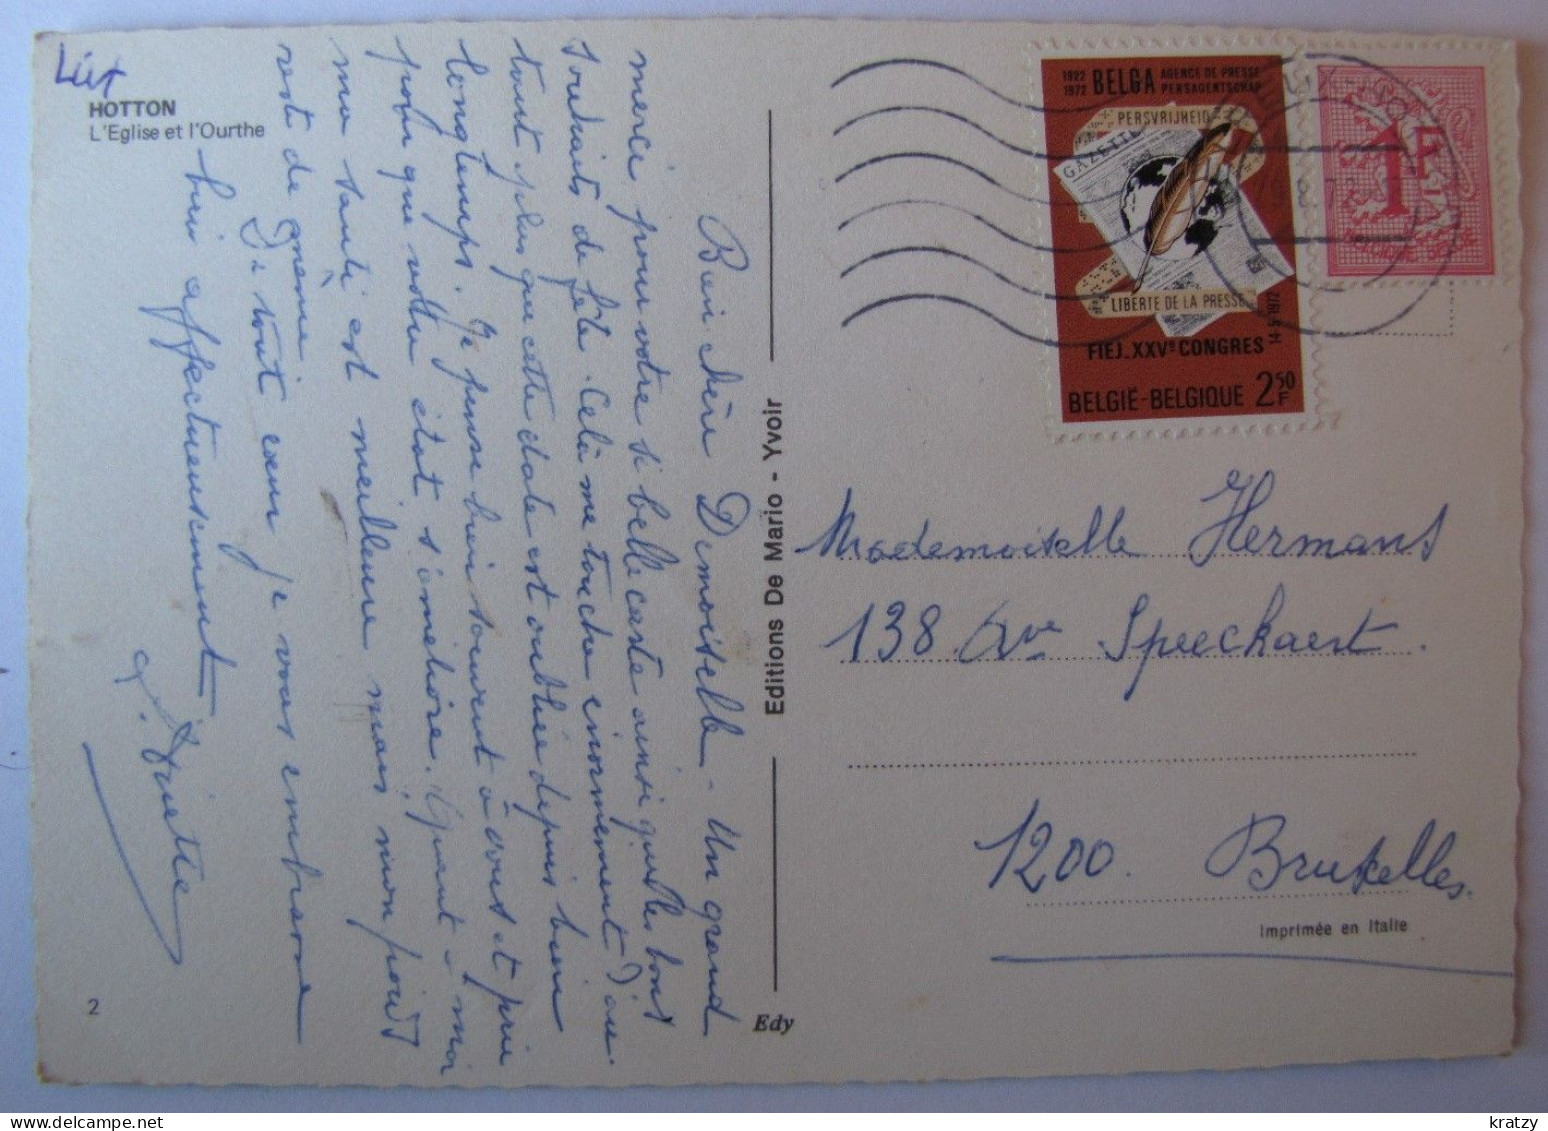 Lux
HOTTON
L'Eglise et l'Ourthe
Bien chère Demoiselle - Un grand
merci pour votre si belle carte ainsi que les bons
souhaits de fête. Cela me touche énormément d'au-
tant plus que cette date est oubliée depuis bien
longtemps. Je pense bien souvent à vous et prie
pour que votre état s'améliore. Quant à moi
ma santé est meilleure mais mon poids
reste de même
De tout cœur je vous embrasse
bien affectueusement
2
Editions De Mario - Yvoir
Edy
1922 1972 BELGA AGENCE DE PRESSE PERSAGENTSCHAP
PERSVRIJHEID
GAZETTE
LIBERTE DE LA PRESSE
14-5-1972
FIEJ. XXVe CONGRES
BELGIË-BELGIQUE 2 50 F
1F
Mademoiselle Hermans
138 Ave Speeckaert.
1200. Bruxelles.
Imprimée en Italie
kratzy